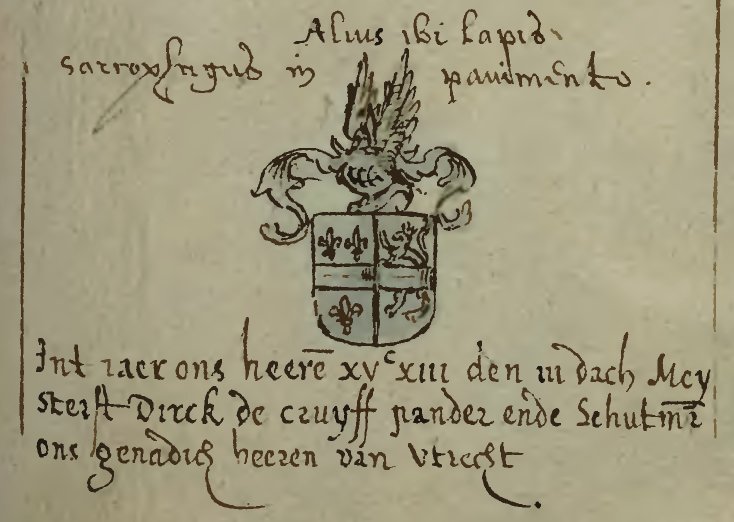 Alius ibi lapis
sarcophagus in pavimento.
Int iaer ons heere xvc xiii den iii dach Mey
sterft Dirck de cruyff pander ende Schutmr
ons genadich heeren van Vtrecht.